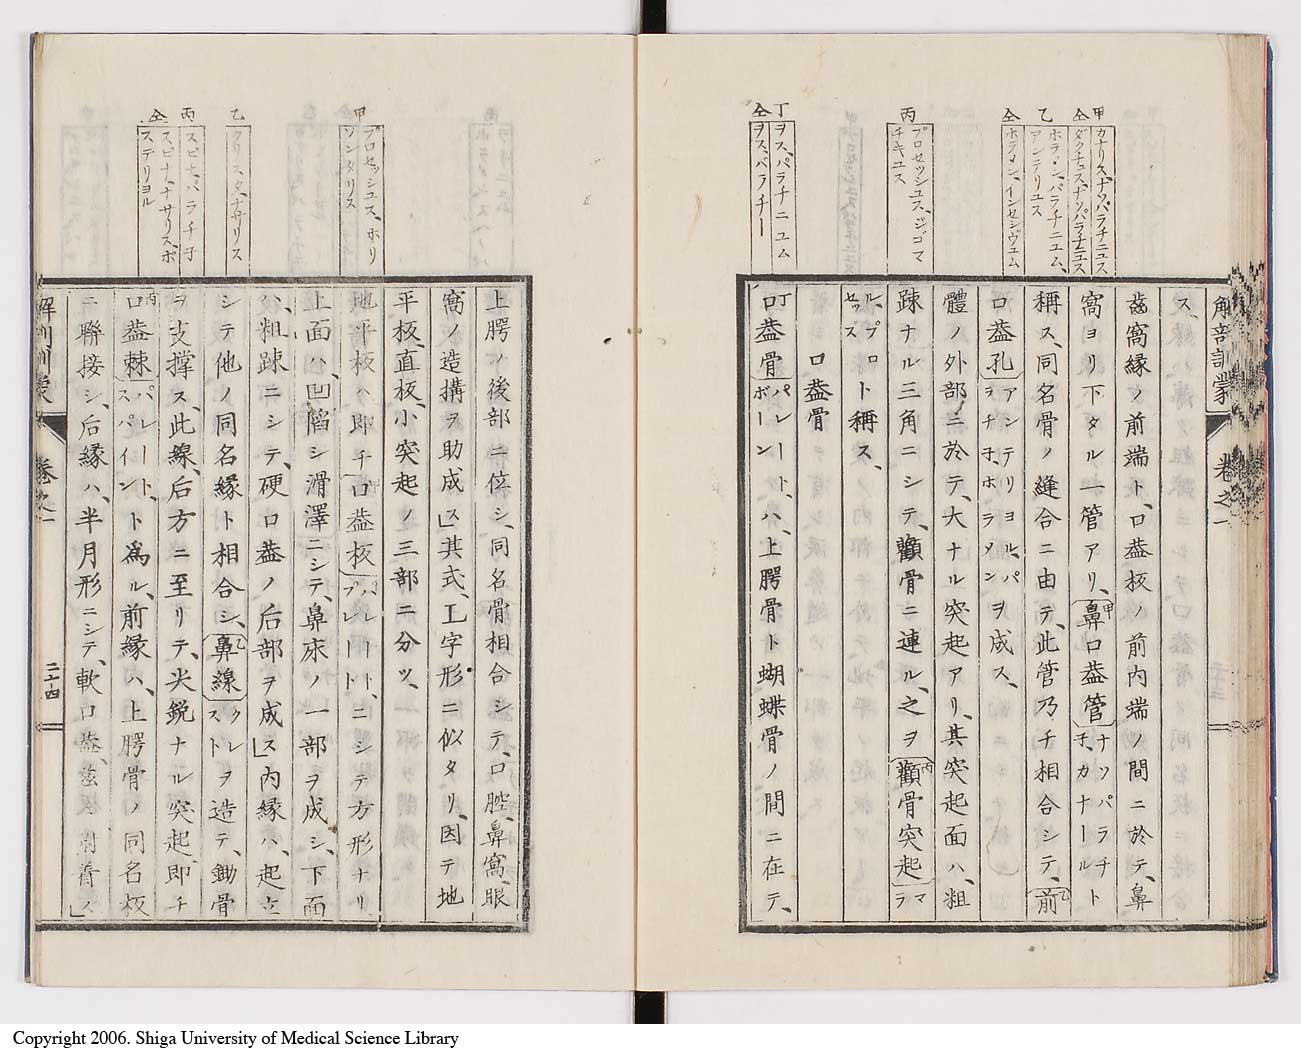 甲 カナリス、ナソパラチニュス
仝 ダクチュス、ナソパラチニュス
乙 ホラメン、パラチニュム、
アンテリュス
仝 ホラメン、インセシヴュム
丙 プロセッシュス、ジゴマ
チキュス
丁 ヲス、パラチニュム
仝 ヲス、パラチー
解剖訓蒙 卷之一
ス、
齒窩縁ノ前端ト、口葢板ノ前内端ノ間ニ於テ、鼻
窩ヨリ下タル一管アリ、甲鼻口葢管ナソパラチ子、カナールト
稱ス、同名骨ノ縫合ニ由テ、此管乃チ相合シテ、乙前
口葢孔アンテリヨル、パラチ子、ホラメンヲ成ス、
體ノ外部ニ於テ、大ナル突起アリ、其突起面ハ、粗
疎ナル三角ニシテ、顴骨ニ連ル、之ヲ丙顴骨突起マラ
ル、プロセッスト稱ス、
口葢骨
丁口葢骨パレート、ボーンハ、上腭骨ト蝴蝶骨ノ間ニ在テ、
甲 プロセッシュス、ホリ
ソンタリス
乙 クリスタ、ナサリス
丙 スピナ、パラチ子
仝 スピナ、ナサリス、ポ
ステリヨル
上腭ノ後部ニ位シ、同名骨相合シテ、口腔、鼻窩、眼
窩ノ造搆ヲ助成ス」其式、工字形ニ似タリ、因テ地
平板、直板、小突起ノ三部ニ分ツ、
地平板ハ即チ口葢板パレート、プレートニシテ方形ナリ
上面ハ、凹陷シ滑澤ニシテ、鼻床ノ一部ヲ成シ、下面
ハ、粗疎ニシテ、硬口葢ノ后部ヲ成ス」内縁ハ、起立
シテ他ノ同名縁ト相合シ、乙鼻線クレストヲ造テ、鋤骨
ヲ支撑ス、此線、后方ニ至リテ、尖鋭ナル突起即チ
丙口葢棘パレート、スパイント爲ル、前縁ハ、上腭骨ノ同名板
ニ聯接シ、后縁ハ、半月形ニシテ、軟口葢、茲ニ附着ス」
解剖訓蒙 卷之一 二十四
Copyright 2006. Shiga University of Medical Science Library